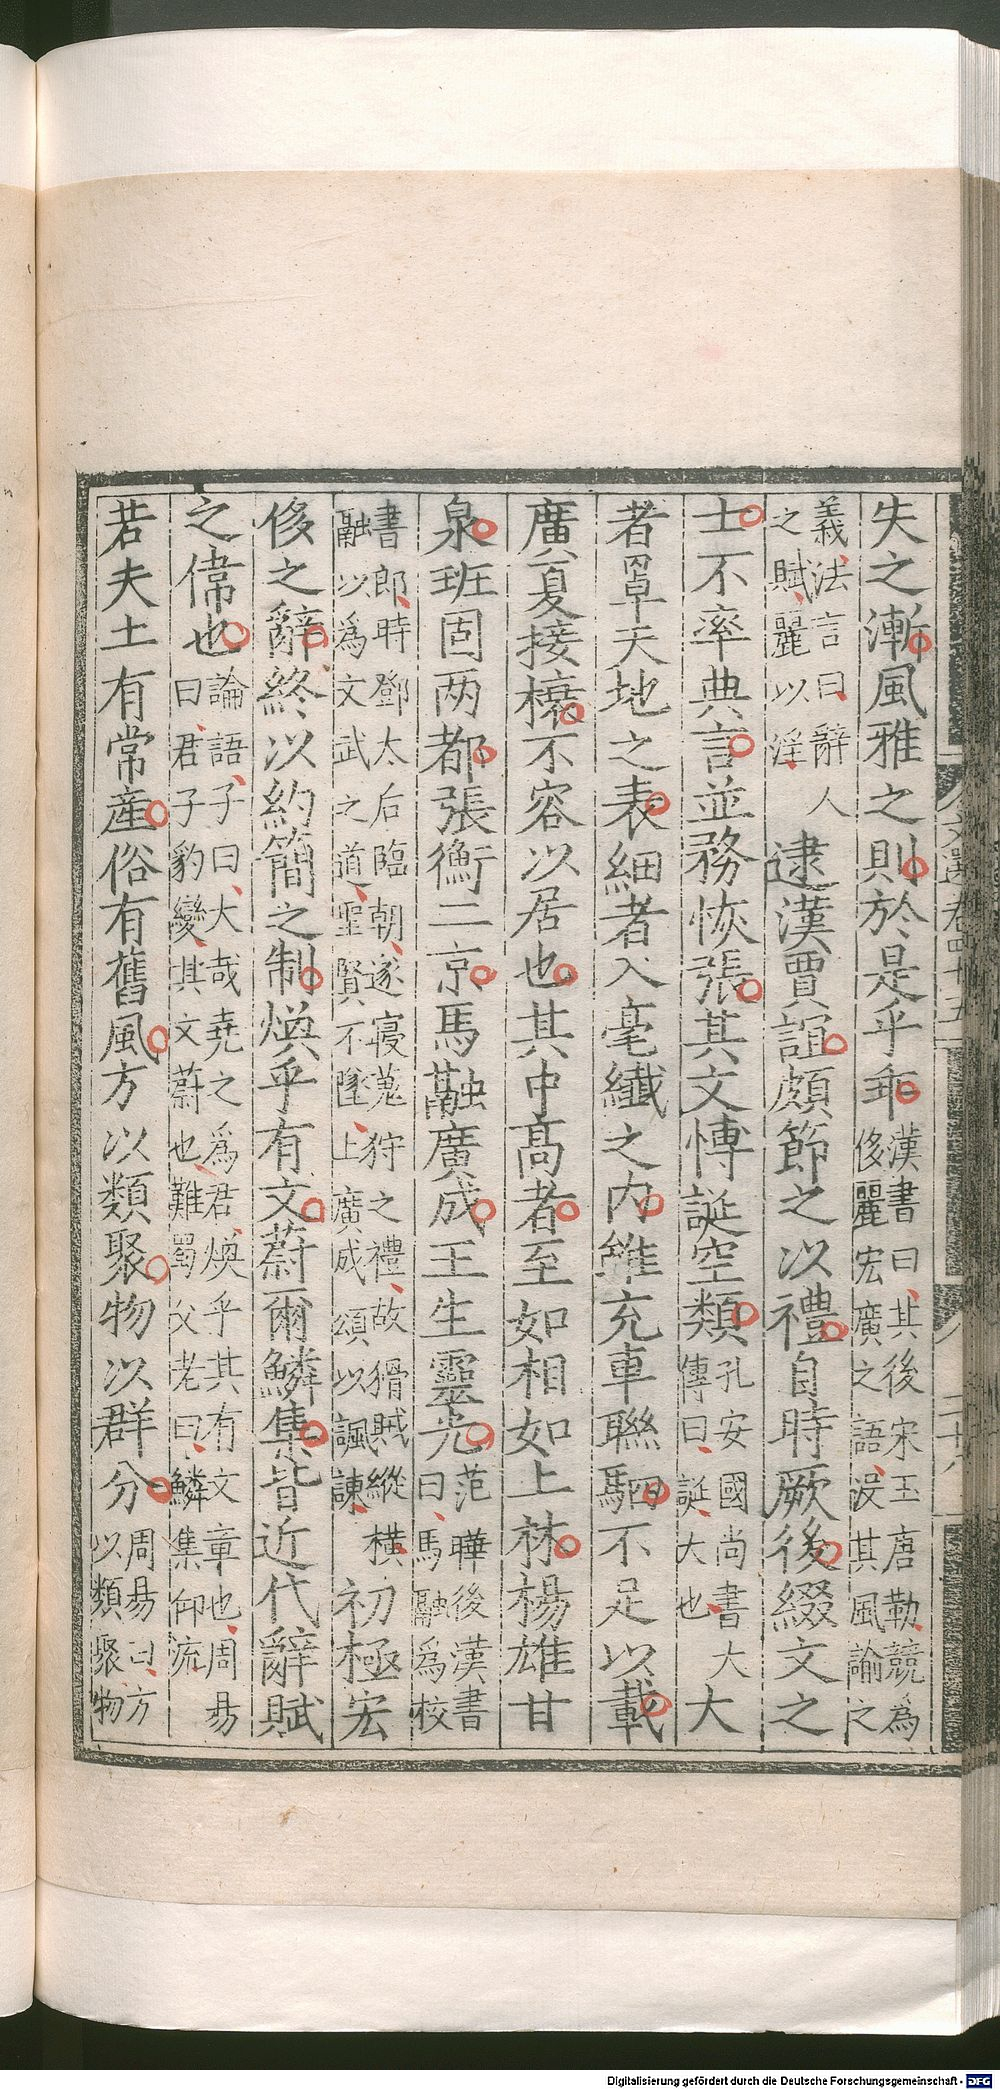 文選卷四十五
二十八
失之漸風雅之則於是乎乖漢書曰其後宋玉唐勒競爲侈麗宏廣之語没其風諭之
義法言曰辭人之賦麗以淫逮漢賈誼頗節之以禮自時厥後綴文之
士不率典言並務恢張其文博誕空類孔安國尚書大傳曰誕大也大
者罩天地之表細者入毫纖之内雖充車聯駟不足以載
廣夏接榱不容以居也其中髙者至如相如上林楊雄甘
泉班固两都張衡二京馬融廣成王生靈光范曄後漢書曰馬融爲校
書郎時鄧太后臨朝遂寢蒐狩之禮故猾賊縱橫融以爲文武之道聖賢不墜上廣成頌以諷諫初極宏
侈之辭終以約簡之制煥乎有文蔚爾鱗集皆近代辭賦
之偉也論語子曰大哉堯之爲君煥乎其有文章也周昜曰君子豹變其文蔚也難蜀父老曰鱗集仰流
若夫土有常産俗有舊風方以類聚物以群分周昜曰方以類聚物
Digitalisierung gefördert durch die Deutsche Forschungsgemeinschaft - DFG